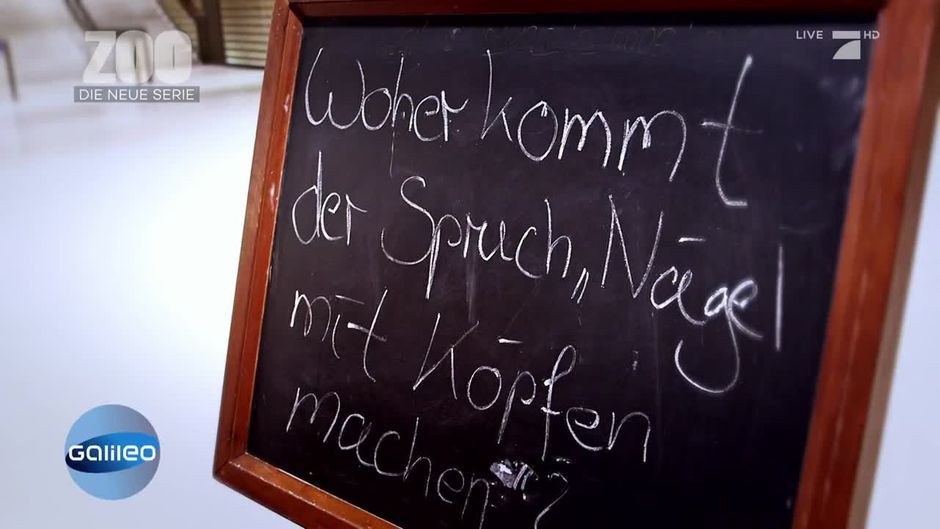 ZOO
DIE NEUE SERIE
LIVE 7 HD
Woher kommt
der Spruch „Nägel
mit Köpfen
machen"?
Galileo